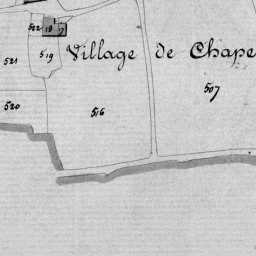 522 18 17
Village de Chape
521 519
507
520 516